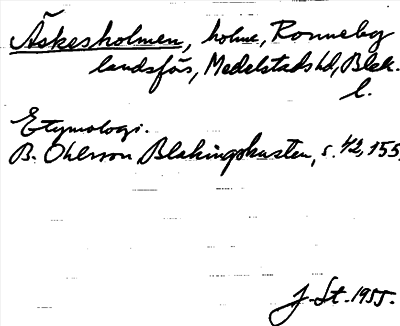 Äskesholmen, holme, Ronneby
landsförs, Medelstads hd, Blek.
l.
Etymologi.
B. Ohlsson Blekingekusten, s. 42, 155.
J. St. 1955.